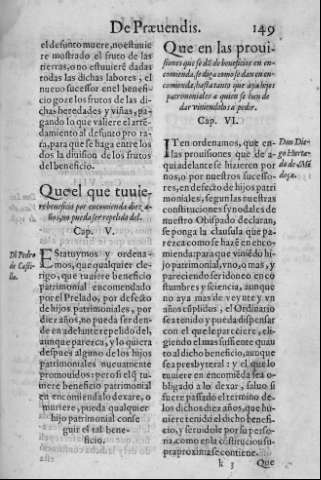 De Præuendis.
149
el defunto muere, no estuuie
re mostrado el fruto de las
tierras, o no estuuierẽ dadas
todas las dichas labores, el
nueuo sucessor en el benefi-
cio goze los frutos de las di-
chas heredades y viñas, pa-
gando lo que valiere el arrẽ-
damiento al defunto pro ra-
ta, para que se haga entre los
dos la diuision de los frutos
del beneficio.
Que el que tuuie-
re beneficio por encomienda diez a-
ños, no pueda ser repelido del.
Cap. V.
Dõ Pedro
de Casti-
lla.
EStatuymos y ordena-
mos, que qualquier cle-
rigo, que tuuiere beneficio
patrimonial encomendado
por el Prelado, por defecto
de hijos patrimoniales, por
diez años, no pueda ser den-
de en adelante repelido del,
aunque parezca, y lo quiera
despues alguno de los hijos
patrimoniales nueuamente
promouidos: pero si el q̃ tu-
uiere beneficio patrimonial
en encomienda lo dexare, o
muriere, pueda qualquier
hijo patrimonial conse
guir el tal bene-
ficio.
Que en las proui-
siones que se dã de beneficios en en-
comienda, se diga como se dan en en-
comienda, hasta tanto que aya hijos
patrimoniales a quien se han de
dar viniendolos a pedir.
Cap. VI.
Don Die-
go Hurta-
do de Mẽ
doça.
ITen ordenamos, que en
las prouisiones que de a-
qui adelante se hizieren por
nos, o por nuestros successo-
res, en defecto de hijos patri
moniales, segun las nuestras
constituciones synodales de
nuestro Obispado declaran,
se ponga la clausula que pa-
rezca como se haze en enco-
miẽda: para que viniẽdo hi-
jo patrimonial, vno, o mas, y
pareciendo ser idoneo en co
stumbres y sciencia, aunque
no aya mas de veynte y vn
años cũplidos, el Ordinario
sea tenido y pueda dispensar
con el que le pareciere, eli-
giendo el mas suffiente quan
to al dicho beneficio, aunque
sea presbyteral: y el que lo
tuuiere en encomiẽda sea o-
bligado a lo dexar, saluo si
fuere passado el termino de
los dichos diez años, que hu-
uiere tenido el dicho benefi-
cio, y seruidole por su perso-
na, como en la constitucion su-
pra proxima se contiene.
k 3
Que